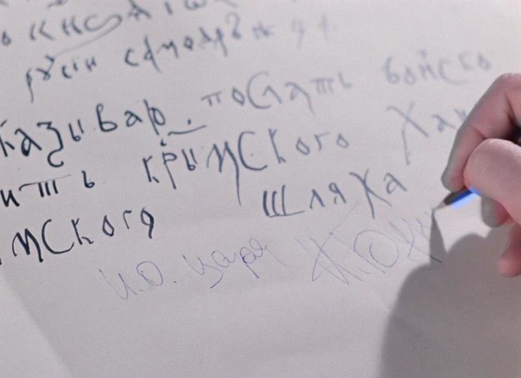 руси самодерж
казываю. послать войско
ить крымского хан
мского шляха
и.о. царя